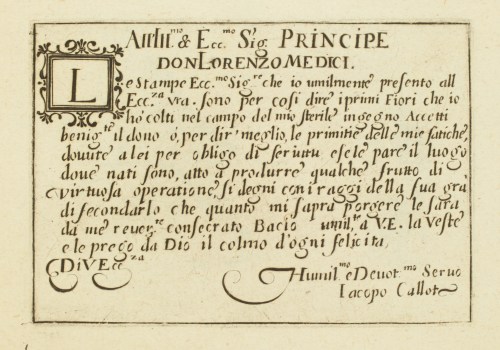 All Ill.mo & Ecc.mo Sig. PRINCIPE
DON LORENZO MEDICI.
Le Stampe Ecc.mo Sig.re che io umilmente presento all
Ecc.za vra. sono per cosi dire i primi Fiori che io
hò colti nel campo del mio sterile ingegno Accetti
benig.te il dono ò, per dir' meglio, le primitie delle mie fatiche,
douute a lei per obligo di seruitu e se le pare il luogo
doue nati sono, atto a produrre qualche frutto di
virtuosa operatione, si degni con i raggi della sua grã
di secondarlo che quanto mi saprà porgere le sara
da me reuer.te consecrato Bacio umil.te a V.E. la veste
e le prego da Dio il colmo d'ogni felicita,
Di V Ecc.za
Humil.mo e Deuot.mo Seruo
Iacopo Callot